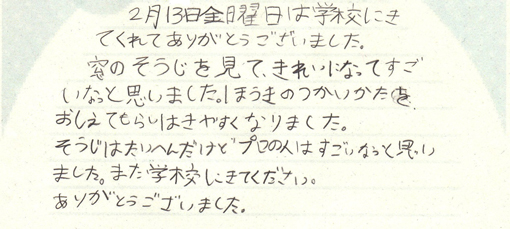 2月13日金曜日は学校にき
てくれてありがとうございました。
窓のそうじを見て、きれいになってすご
いなっと思いました。ほうきのつかいかたを
おしえてもらいはきやすくなりました。
そうじはたいへんだけどプロの人はすごいなっと思い
ました。また学校にきてください。
ありがとうございました。